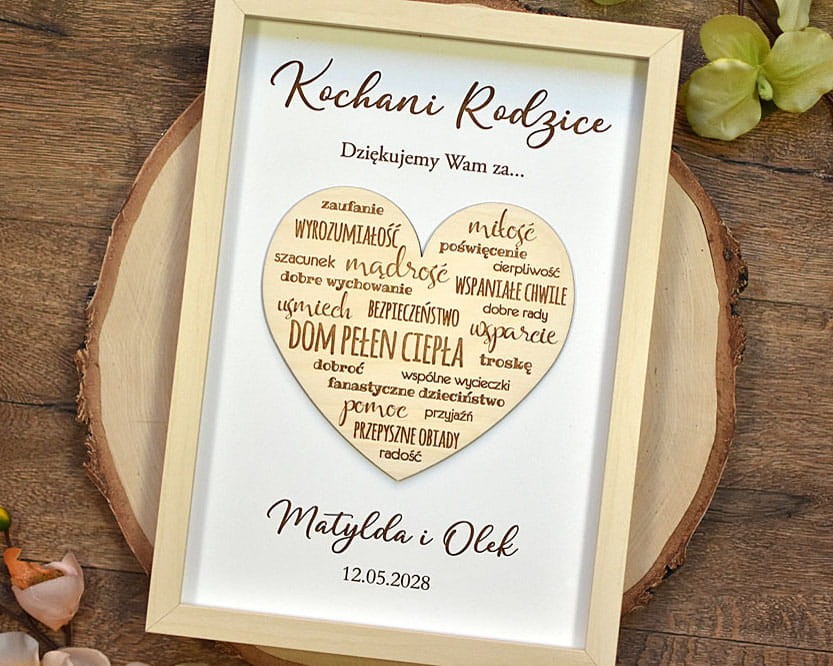 Kochani Rodzice
Dziękujemy Wam za...
zaufanie
WYROZUMIAŁOŚĆ
miłość
poświęcenie
szacunek mądrość cierpliwość
dobre wychowanie WSPANIAŁE CHWILE
uśmiech BEZPIECZEŃSTWO dobre rady
DOM PEŁEN CIEPŁA wsparcie
troskę
dobroć wspólne wycieczki
fanastyczne dzieciństwo
pomoc przyjaźń
PRZEPYSZNE OBIADY
radość
Matylda i Olek
12.05.2028